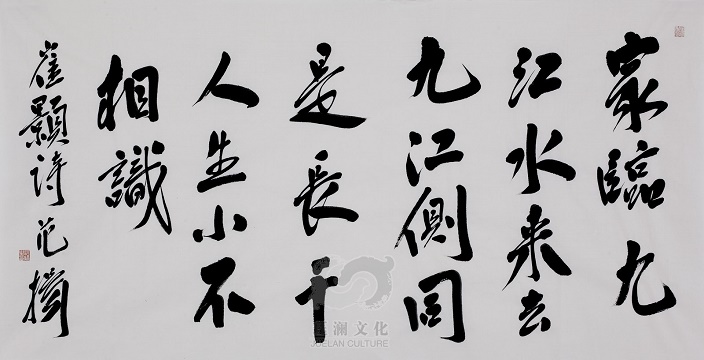 家臨九
江水来去
九江側同
是長干
人生小不
相識
崔顥詩 范
澜文化
JUELAN CULTURE